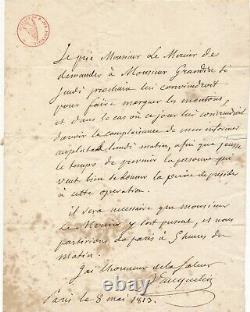 Je prie Monsieur Le Mercier de
demander à Monsieur Grandin si
jeudi prochain lui conviendroit
pour faire marquer les moutons,
et dans le cas où ce jour lui conviendroit
d'avoir la complaisance de m'en informer
lundi matin, afin que j'aie
le temps de prévenir la personne qui
veut bien se donner la peine de présider
à cette opération.
il sera nécessaire que monsieur
le Mercier y soit présent, et nous
partirions de paris à 5 heures du
matin.
J'ai l'honneur de le saluer
Vauquelin
Paris le 8 mai 1813.